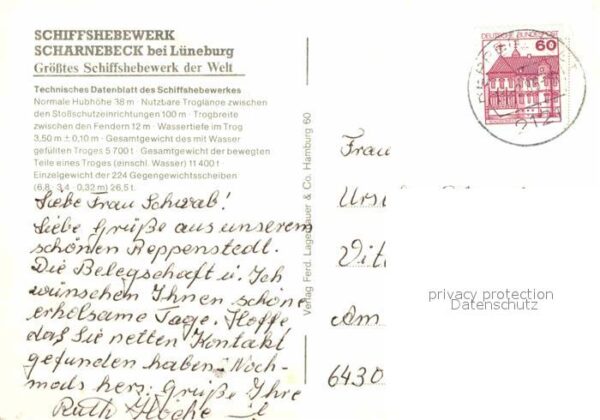 SCHIFFSHEBEWERK
SCHARNEBECK bei Lüneburg
Größtes Schiffshebewerk der Welt
Technisches Datenblatt des Schiffshebewerkes
Normale Hubhöhe 38 m · Nutzbare Troglänge zwischen
den Stoßschutzeinrichtungen 100 m · Trogbreite
zwischen den Fendern 12 m · Wassertiefe im Trog
3,50 m ± 0,10 m · Gesamtgewicht des mit Wasser
gefüllten Troges 5 700 t · Gesamtgewicht der bewegten
Teile eines Troges (einschl. Wasser) 11 400 t
Einzelgewicht der 224 Gegengewichtsscheiben
(6,8 · 3,4 · 0,32 m) 26,5 t.
Liebe Frau Schwab!
Liebe Grüße aus unserem
schönen Reppenstedt.
Die Belegschaft u. Ich
wünschen Ihnen schöne
erholsame Tage. Hoffe,
daß Sie netten Kontakt
gefunden haben. Noch-
mals herz. Grüße Ihre
Ruth
Verlag Ferd. Lagerbauer & Co. Hamburg 60
DEUTSCHE BUNDESPOST
60
Frau
Urs
Vit
Am
6430
privacy protection
Datenschutz